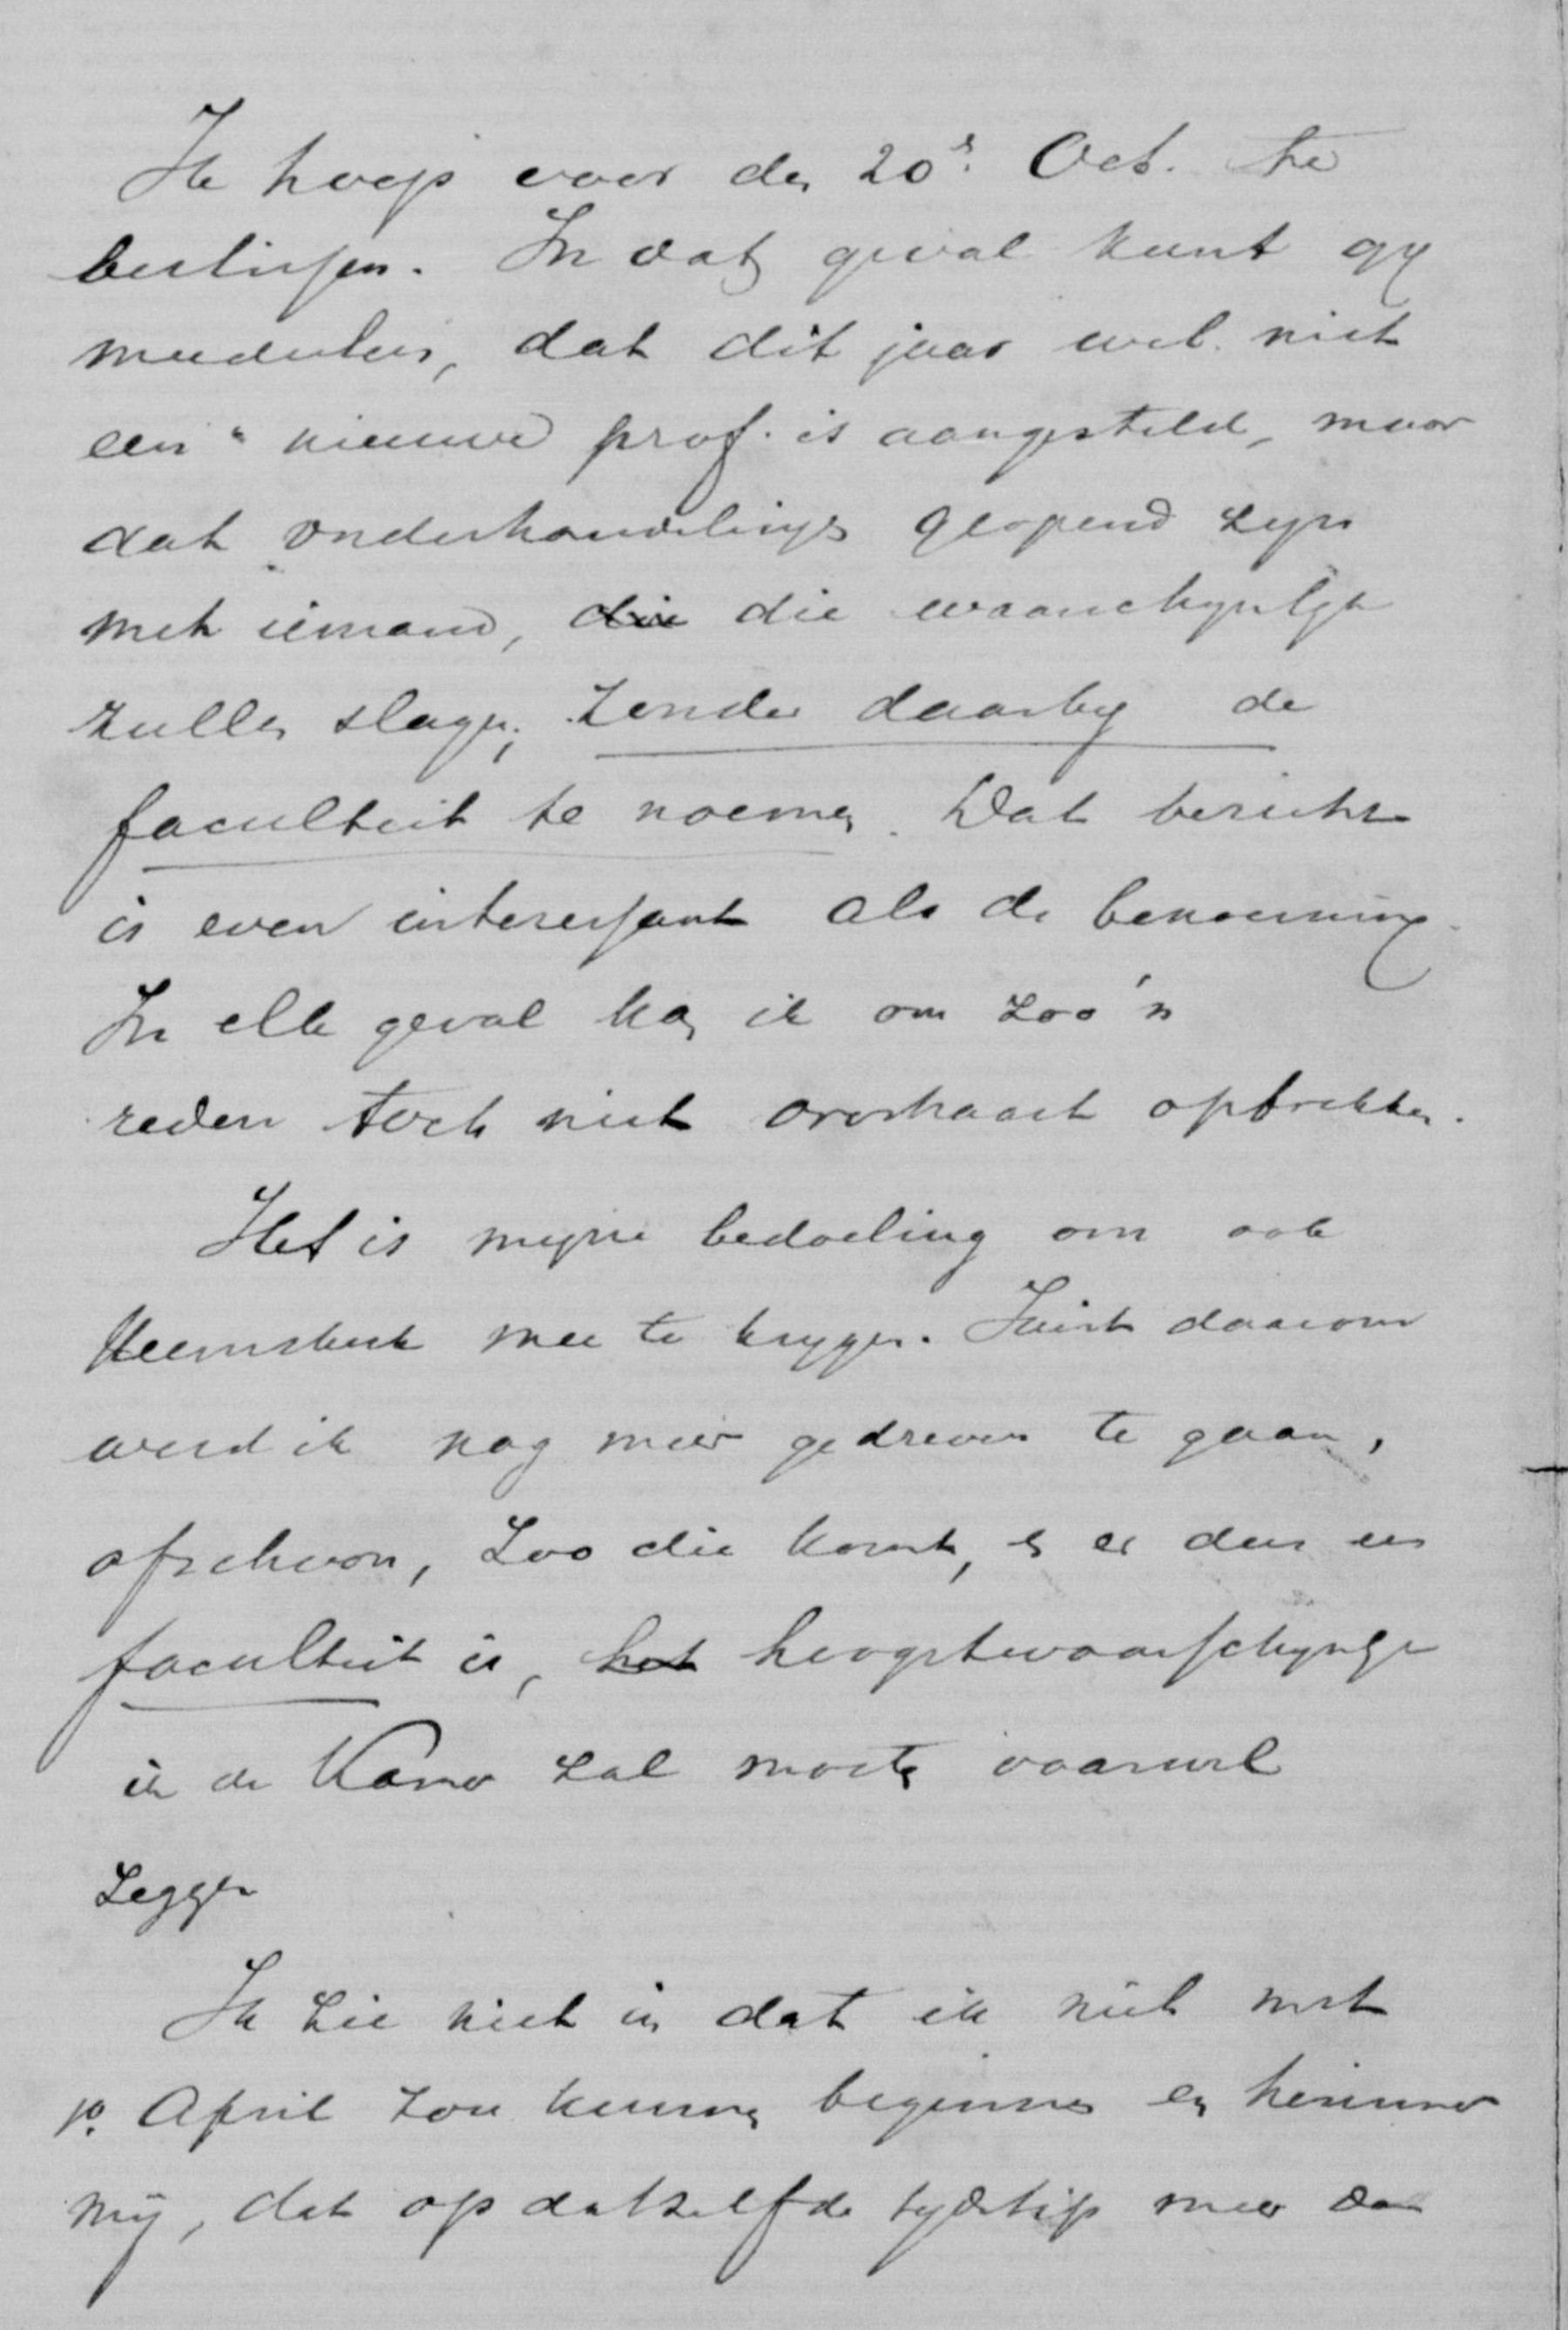 Ik hoop voor den 20n. Oct. te
beslissen. In dat geval kunt gij
meedeelen, dat dit jaar wel niet
een nieuwe prof. is aangesteld, maar
dat onderhandelingen geopend zijn
met iemand, die die waarschijnlijk
zullen slagen, zonder daarbij de
faculteit te noemen. Dat bericht
is even interessant als de benoeming.
In elk geval kan ik om zoo'n
reden toch niet overhaast optrekken.
Het is mijne bedoeling om ook
Heemskerk mee te krijgen. Juist daarom
werd ik nog meer gedreven te gaan,
ofschoon, zoo die komt, en er dus een
faculteit is, het hoogstwaarschijnlijk
ik de Kamer zal moeten vaarwel
zeggen
Ik zie niet in dat ik niet met
1o. April zou kunnen beginnen en herinner
mij, dat op datzelfde tijdstip meer dan